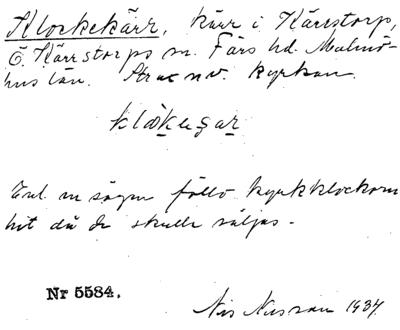 Klockekärr, kärr i Kärrstorp,
Ö. Kärrstorps sn. Färs hd. Malmö-
hus län. Strax nv. kyrkan.
Enl. en sägen föllo kyrkklockorna
hit då de skulle säljas.
Nr 5584.
Nis Nisson 1934.